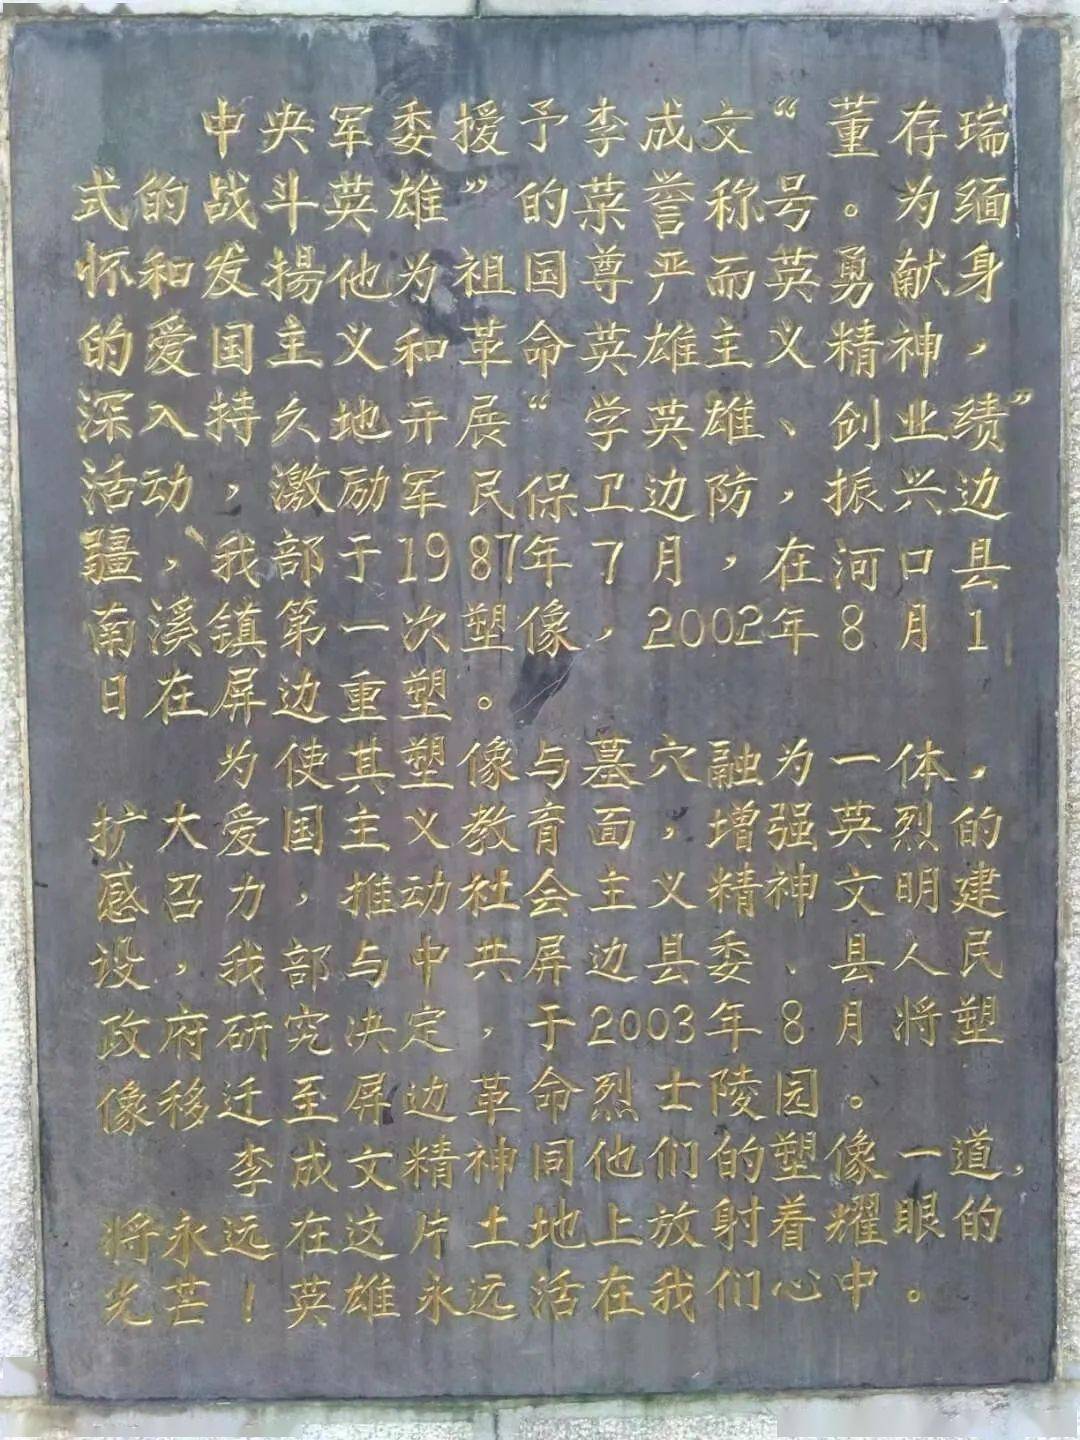 中央军委援予李成文“董存瑞
式的战斗英雄”的荣誉称号。为缅
怀和发揚他为祖国尊严而英勇献身
的爱国主义和革命英雄主义精神，
深入持久地开展“学英雄、创业绩”
活动，激励军民保卫边防，振兴边
疆，我部于1987年7月，在河口县
南溪镇第一次塑像，2002年8月1
日在屏边重塑。
为使其塑像与墓穴融为一体，
扩大爱国主义教育面，增强英烈的
感召力，推动社会主义精神文明建
设，我部与中共屏边县委、县人民
政府研究决定，于2003年8月将塑
像移迁至屏边革命烈士陵园。
李成文精神同他们的塑像一道，
将永远在这片土地上放射着耀眼的
光芒！英雄永远活在我们心中。